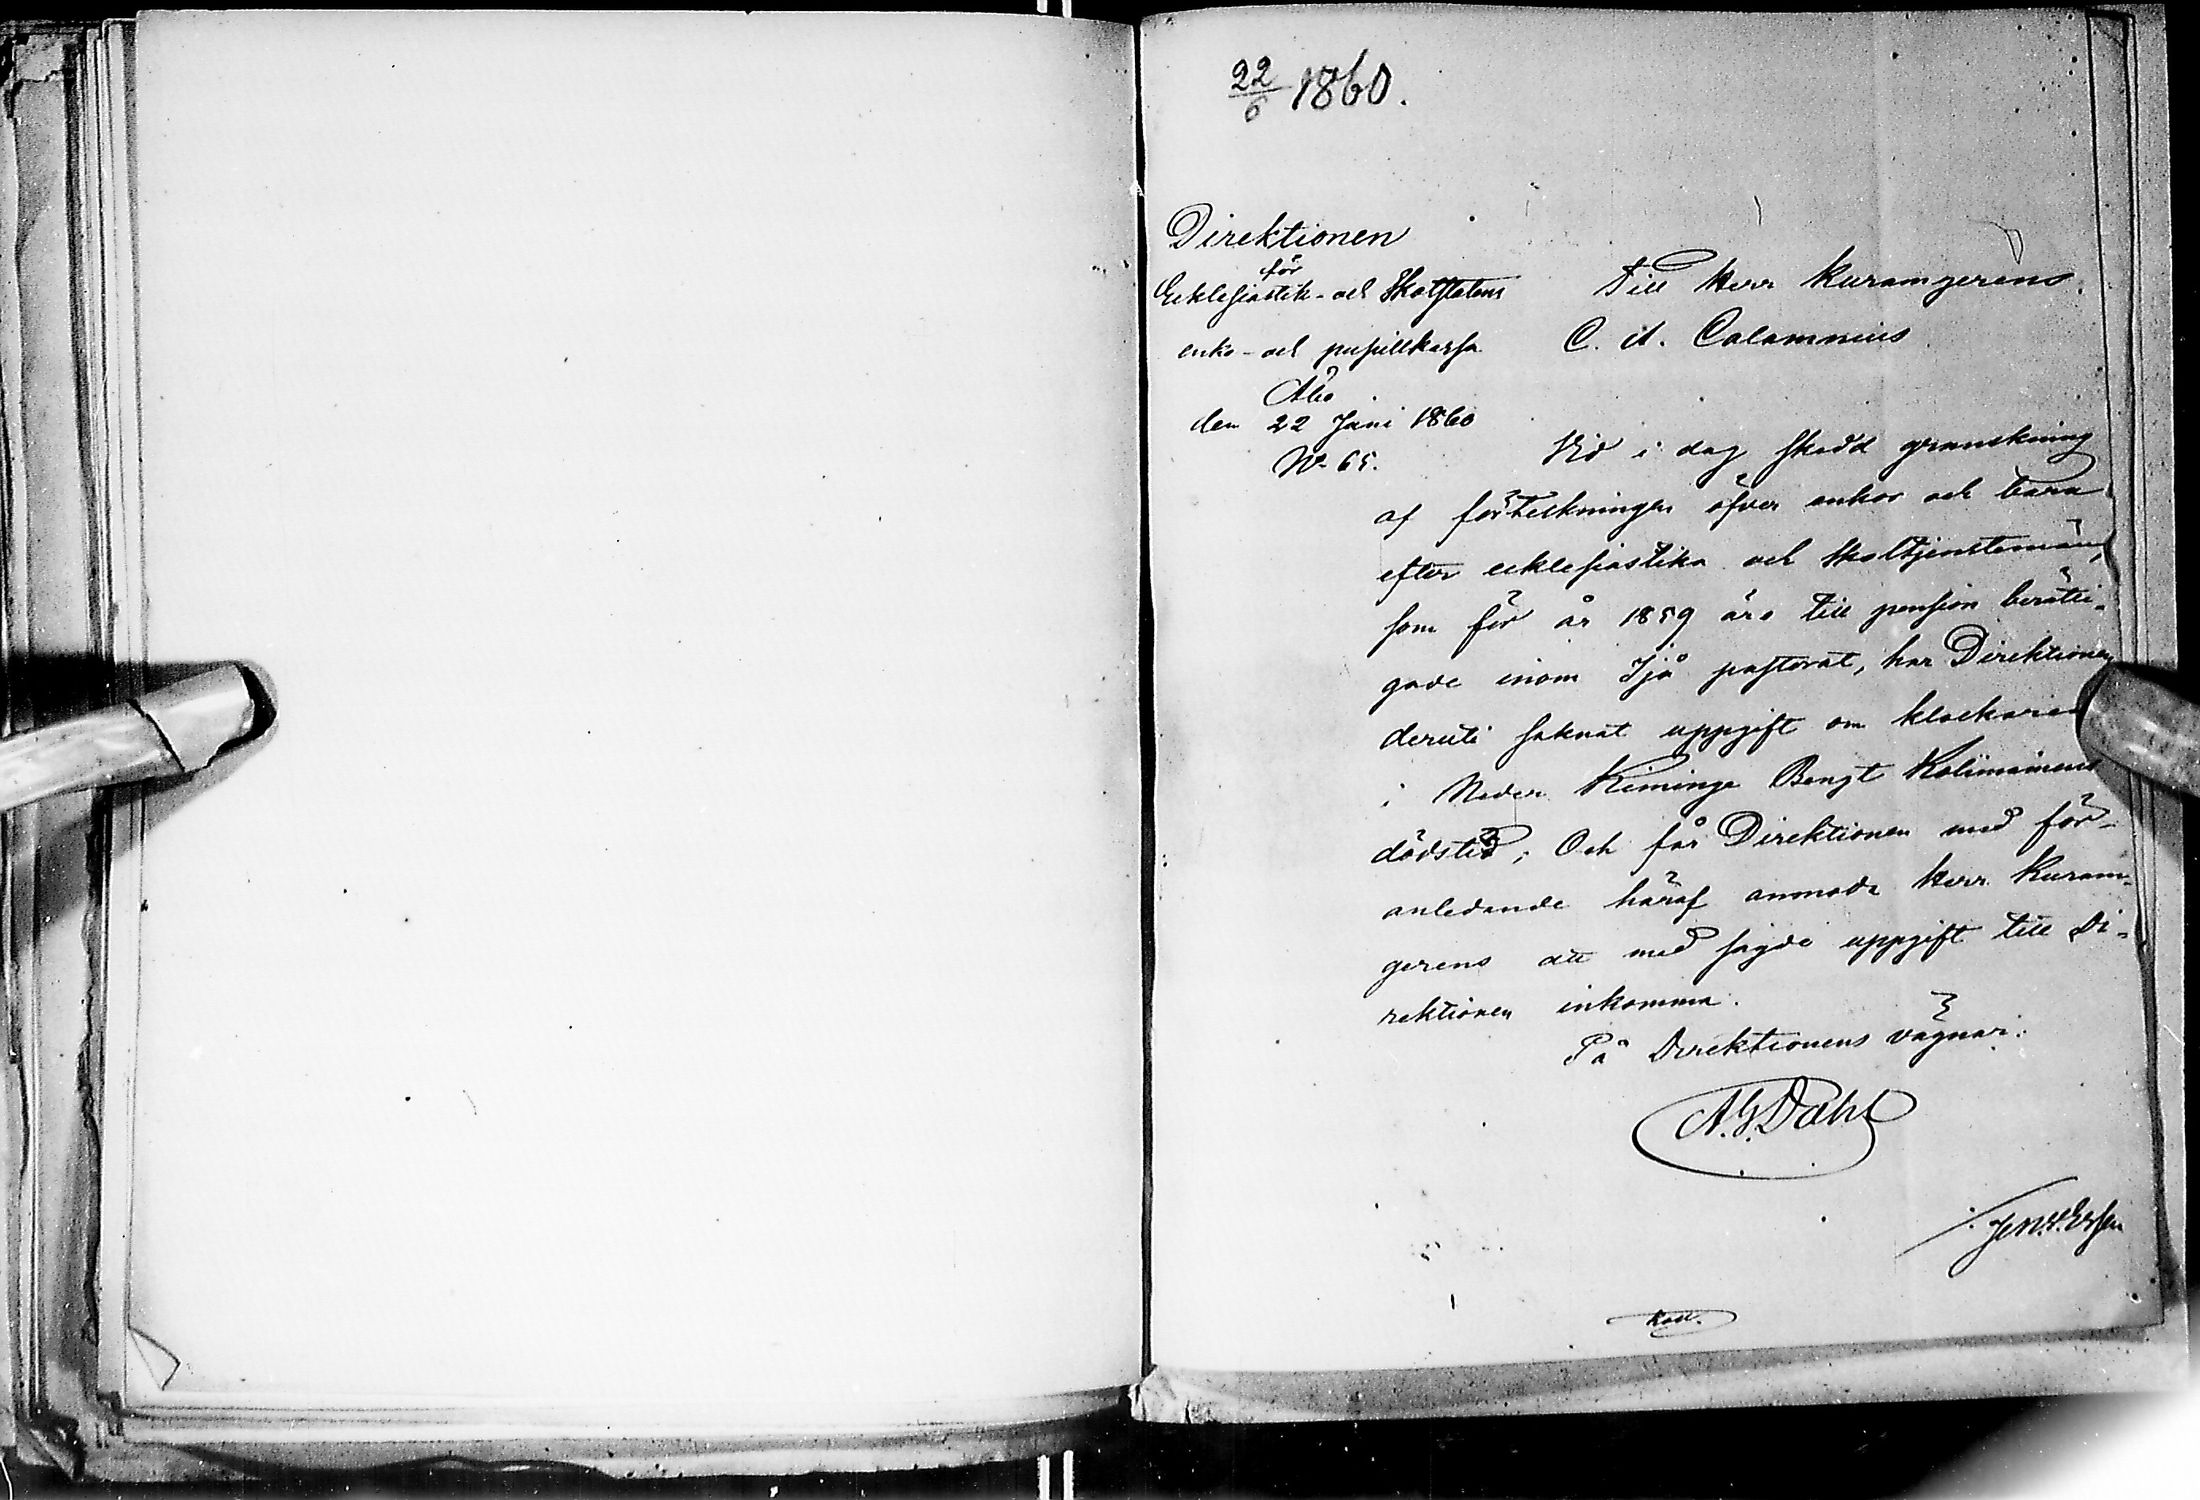 22/6 1860.
Direktionen
för
Ecklesiastik- och Skolstatens
enke- och pupillkassa
Åbo
den 22 Juni 1860
No 65.
Till Herr Kuramgerens
C. A. Calamnius
Vid i dag skedd granskning
af förteckningen öfver enkor och barn
efter ecklesiastika och skoltjenstemän,
som för år 1859 äro till pension berätti-
gade inom Ijå pastorat, har Direktionen
deruti saknat uppgift om klockaren
i Neder Kiminge Bengt Kolimainens
dödstid; Och får Direktionen med för-
anledande häraf anmoda Herr Kuram-
gerens att med sagde uppgift till Di-
rektionen inkomma.
På Direktionens vägnar:
A. G. Dahl